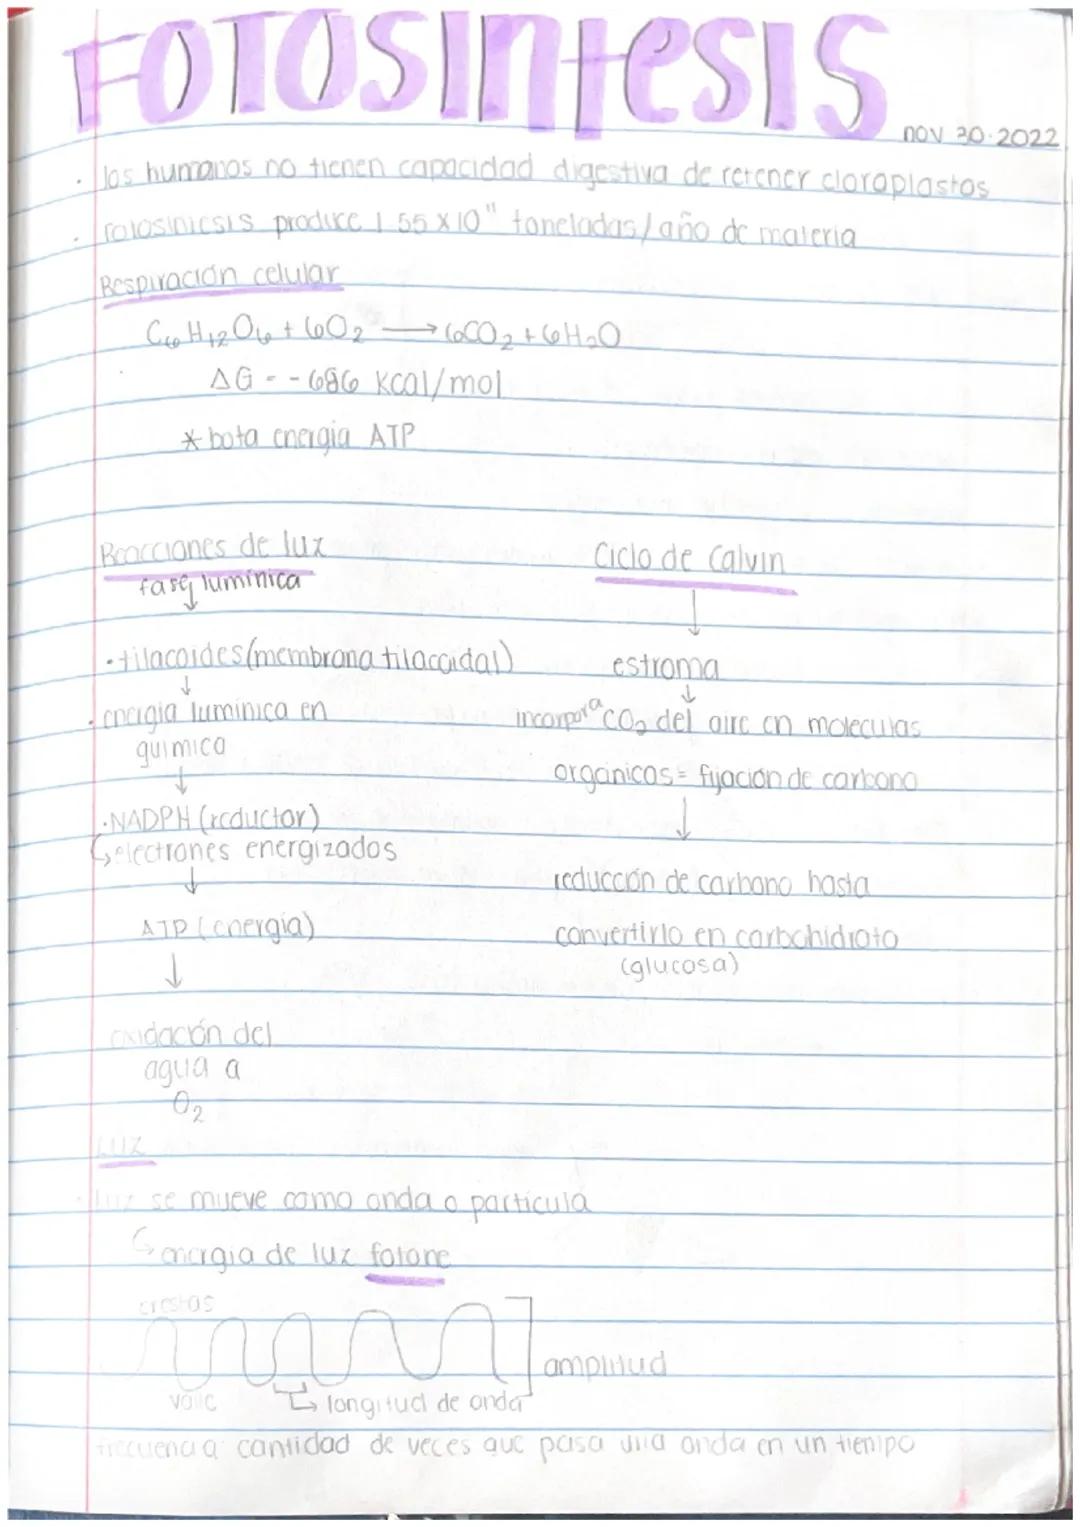 FOTOSINTESIS
nov 30.2022
· los humanos no tienen capacidad digestiva de retener cloroplastos
· fotosintesis produce 1.55 x 10" toneladas/año de materia
Respiración celular
C6H12O6 + 6O2 → 6CO2 + 6H2O
ΔG = -686 kcal/mol
* bota energia ATP
Reacciones de luz
fase luminica
↓
· tilacoides (membrana tilacoidal)
↓
· energia luminica en
quimica
↓
· NADPH (reductor)
↳ electrones energizados
↓
ATP (energia)
↓
oxidación del
agua a
O2
Ciclo de Calvin
↓
estroma
↓
incorpora CO2 del aire en moleculas
organicas = fijación de carbono
↓
reducción de carbono hasta
convertirlo en carbohidrato
(glucosa)
LUZ
· luz se mueve como onda o particula
↳ energia de luz fotone
crestas
amplitud
valle
↳ longitud de onda
frecuencia: cantidad de veces que pasa una onda en un tiempo